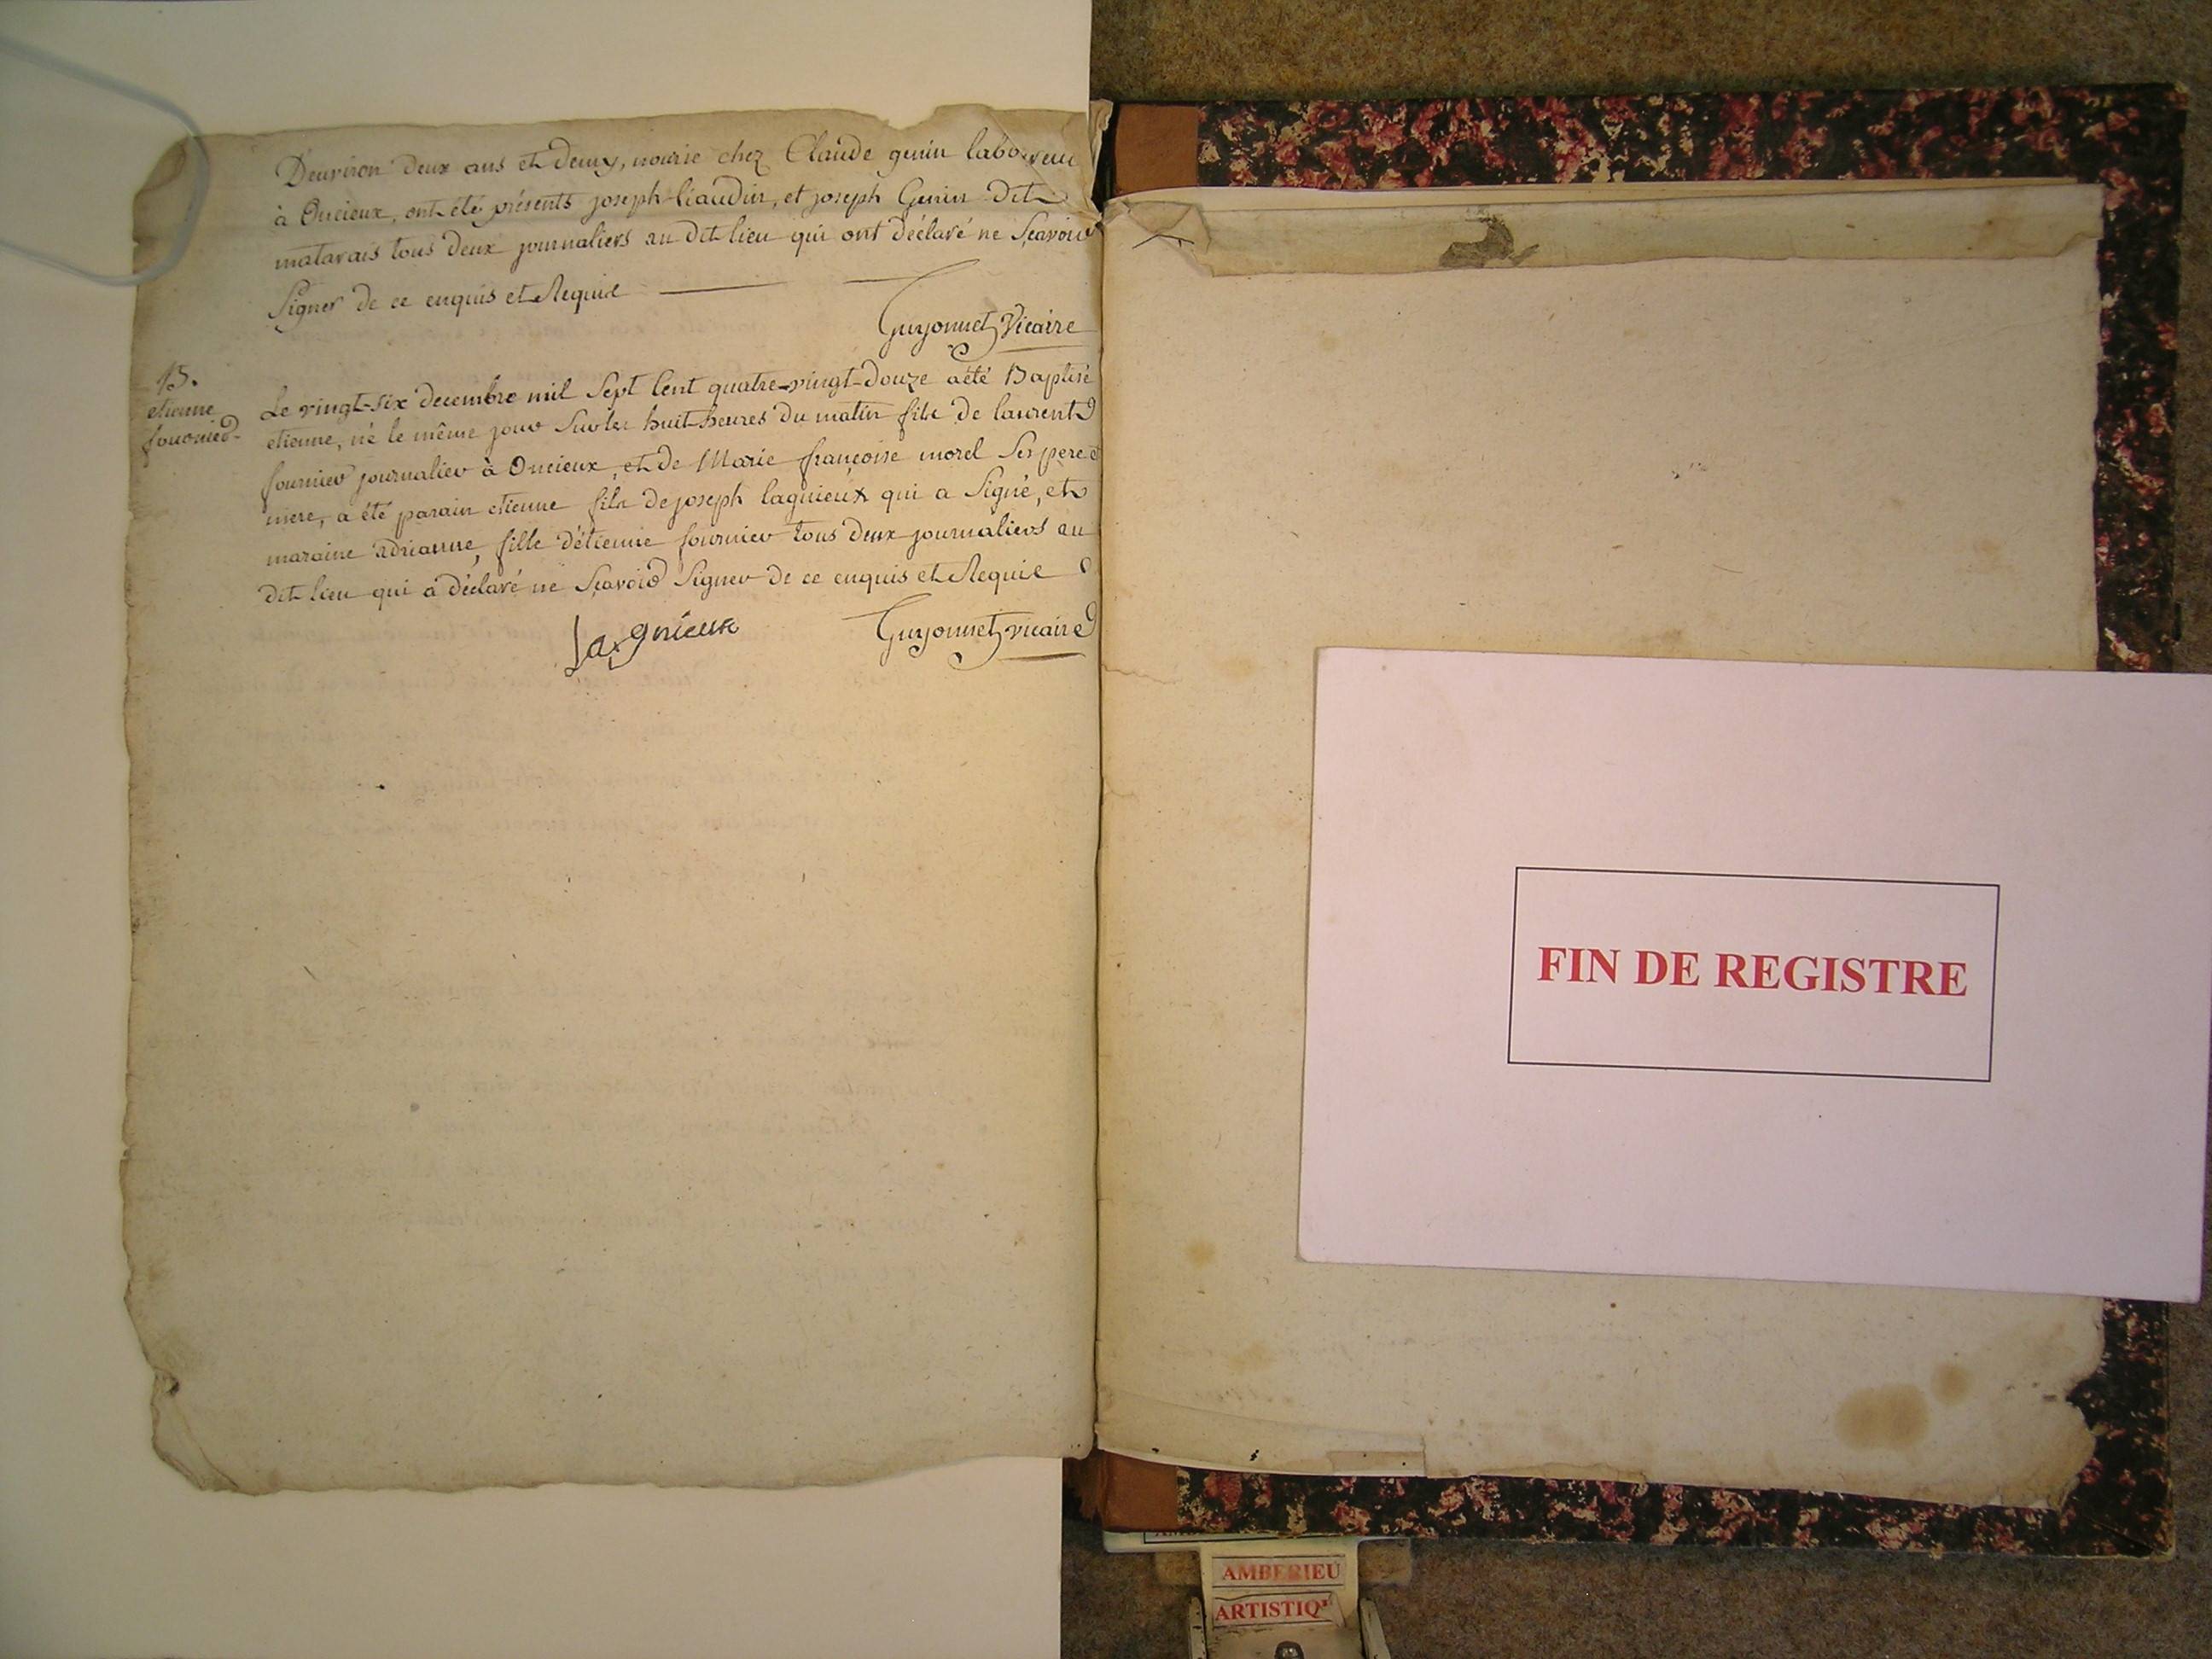 D'environ deux ans et demy, nourie chez Claude genin laboureur
à Oncieux, ont été présents joseph liaudin, et joseph Genin dit
matarais tous deux journaliers au dit lieu qui ont déclaré ne Sçavoir
Signer de ce enquis et Requis
Guyonnet Vicaire
13.
etienne
fournier
Le vingt-six decembre mil Sept Cent quatre-vingt-douze a été Baptisé
etienne, né le même jour Sur les huit heures du matin fils de laurent
fournier journalier à Oncieux, et de Marie françoise morel Ses pere et
mere, a été parain etienne fils de joseph lagnieux qui a Signé, et
maraine adrianne, fille d'étienne fournier tous deux journaliers au
dit lieu qui a déclaré ne Sçavoir Signer de ce enquis et Requise
Lagnieux
Guyonnet vicaire
FIN DE REGISTRE
AMBERIEU
ARTISTIQ